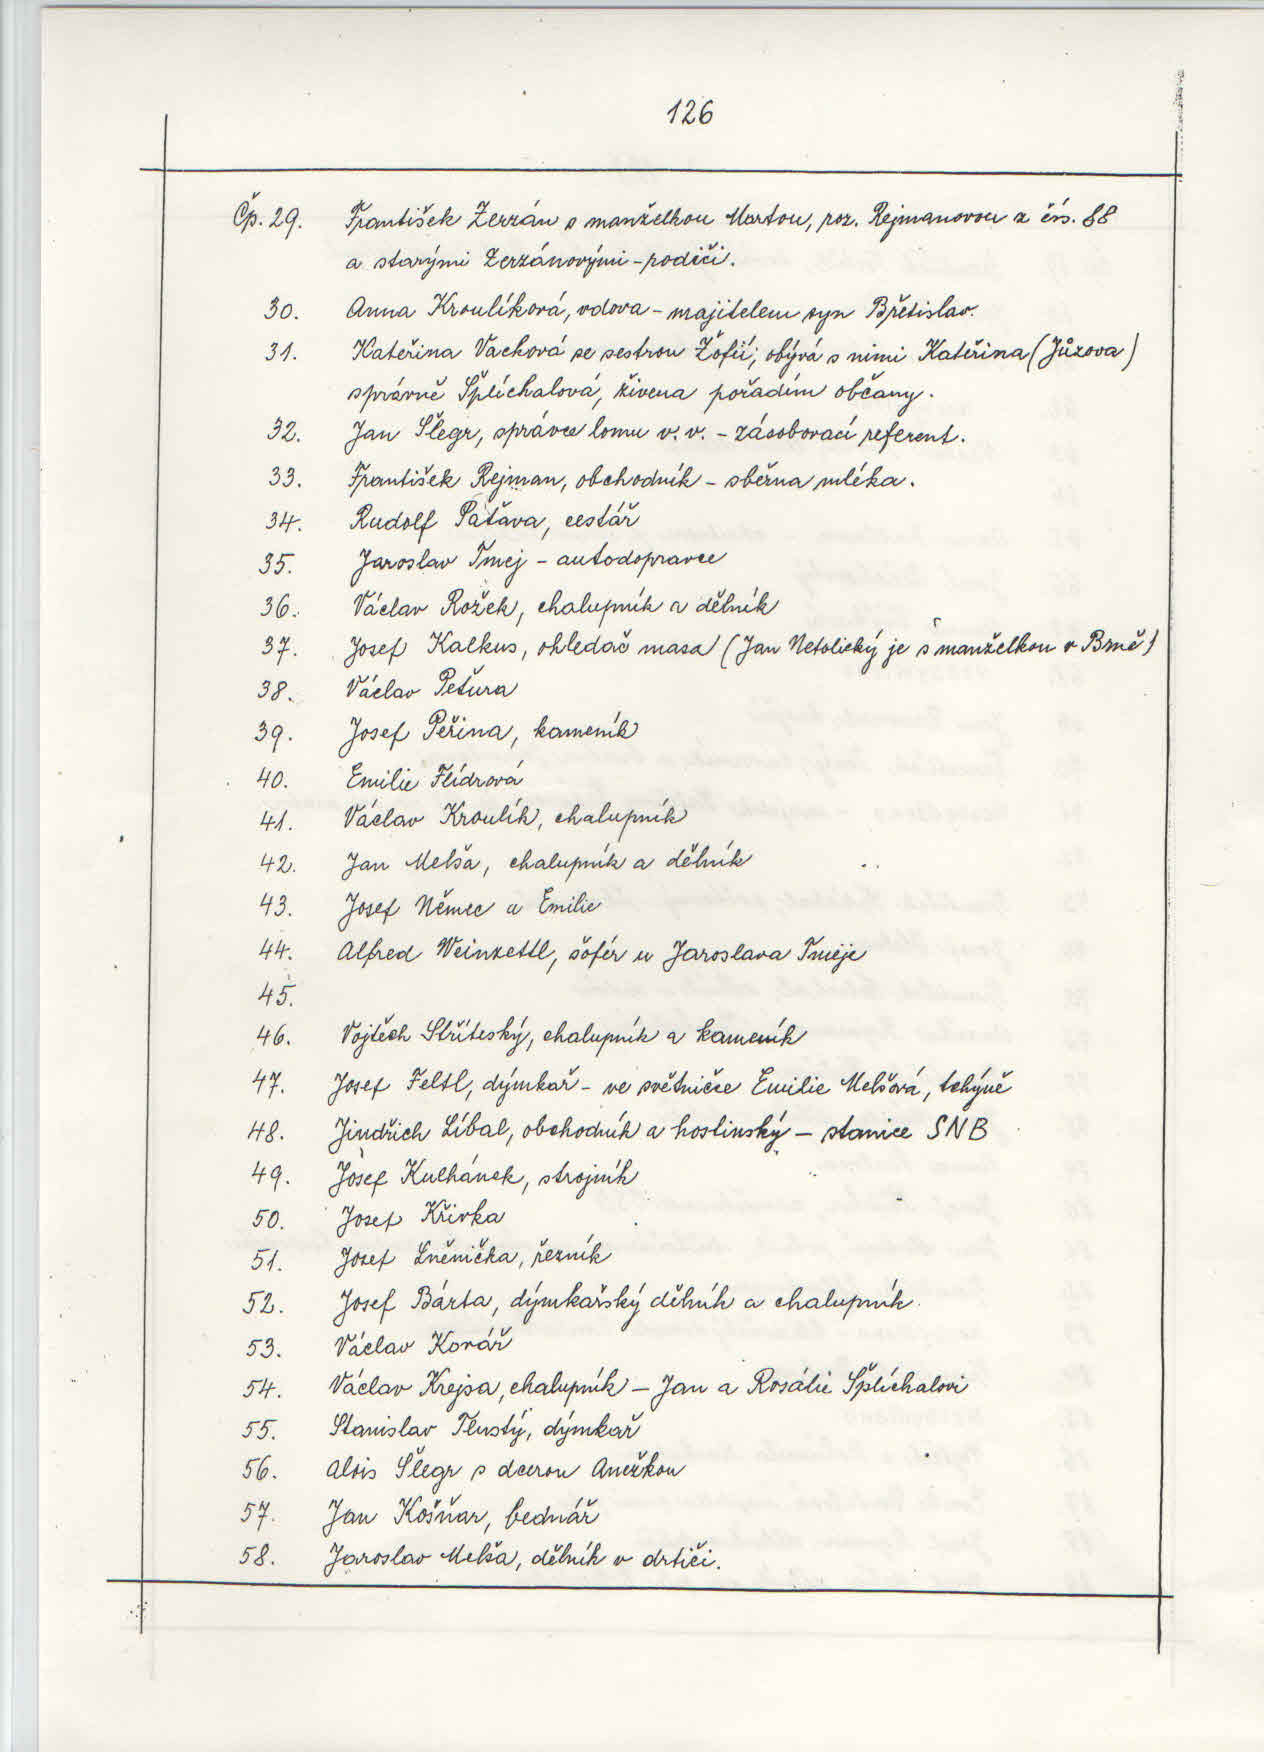 126
Čp. 29. František Zerzán s manželkou Martou, roz. Rejmanovou z čís. 88
a starými Zerzánovými - rodiči.
30. Anna Kroulíková, vdova - majitelem syn Břetislav.
31. Kateřina Vachová se sestrou Žofií; obývá s nimi Kateřina (Jůzova)
správně Šplíchalová, živena pořadím občany.
32. Jan Šlegr, správce lomu v. v. - zásobovací referent.
33. František Rejman, obchodník - sběrna mléka.
34. Rudolf Paťava, cestář
35. Jaroslav Tmej - autodopravce
36. Václav Rožek, chalupník a dělník
37. Josef Kalkus, ohledač masa (Jan Netolický je s manželkou v Brně)
38. Václav Peťura
39. Josef Peřina, kameník
40. Emilie Flídrová
41. Václav Kroulík, chalupník
42. Jan Melša, chalupník a dělník
43. Josef Němec a Emilie
44. Alfred Weinzettl, šofér u Jaroslava Tmeje
45.
46. Vojtěch Stříteský, chalupník a kameník
47. Josef Feltl, dýmkař - ve světničce Emilie Melšová, tchýně
48. Jindřich Líbal, obchodník a hostinský - stanice SNB
49. Josef Kulhánek, strojník
50. Josef Křivka
51. Josef Lněnička, řezník
52. Josef Bárta, dýmkařský dělník a chalupník.
53. Václav Kovář
54. Václav Krejsa, chalupník - Jan a Rosálie Šplíchalovi
55. Stanislav Tlustý, dýmkař
56. Alois Šlegr s dcerou Anežkou
57. Jan Košňar, bednář
58. Jaroslav Melša, dělník v drtiči.